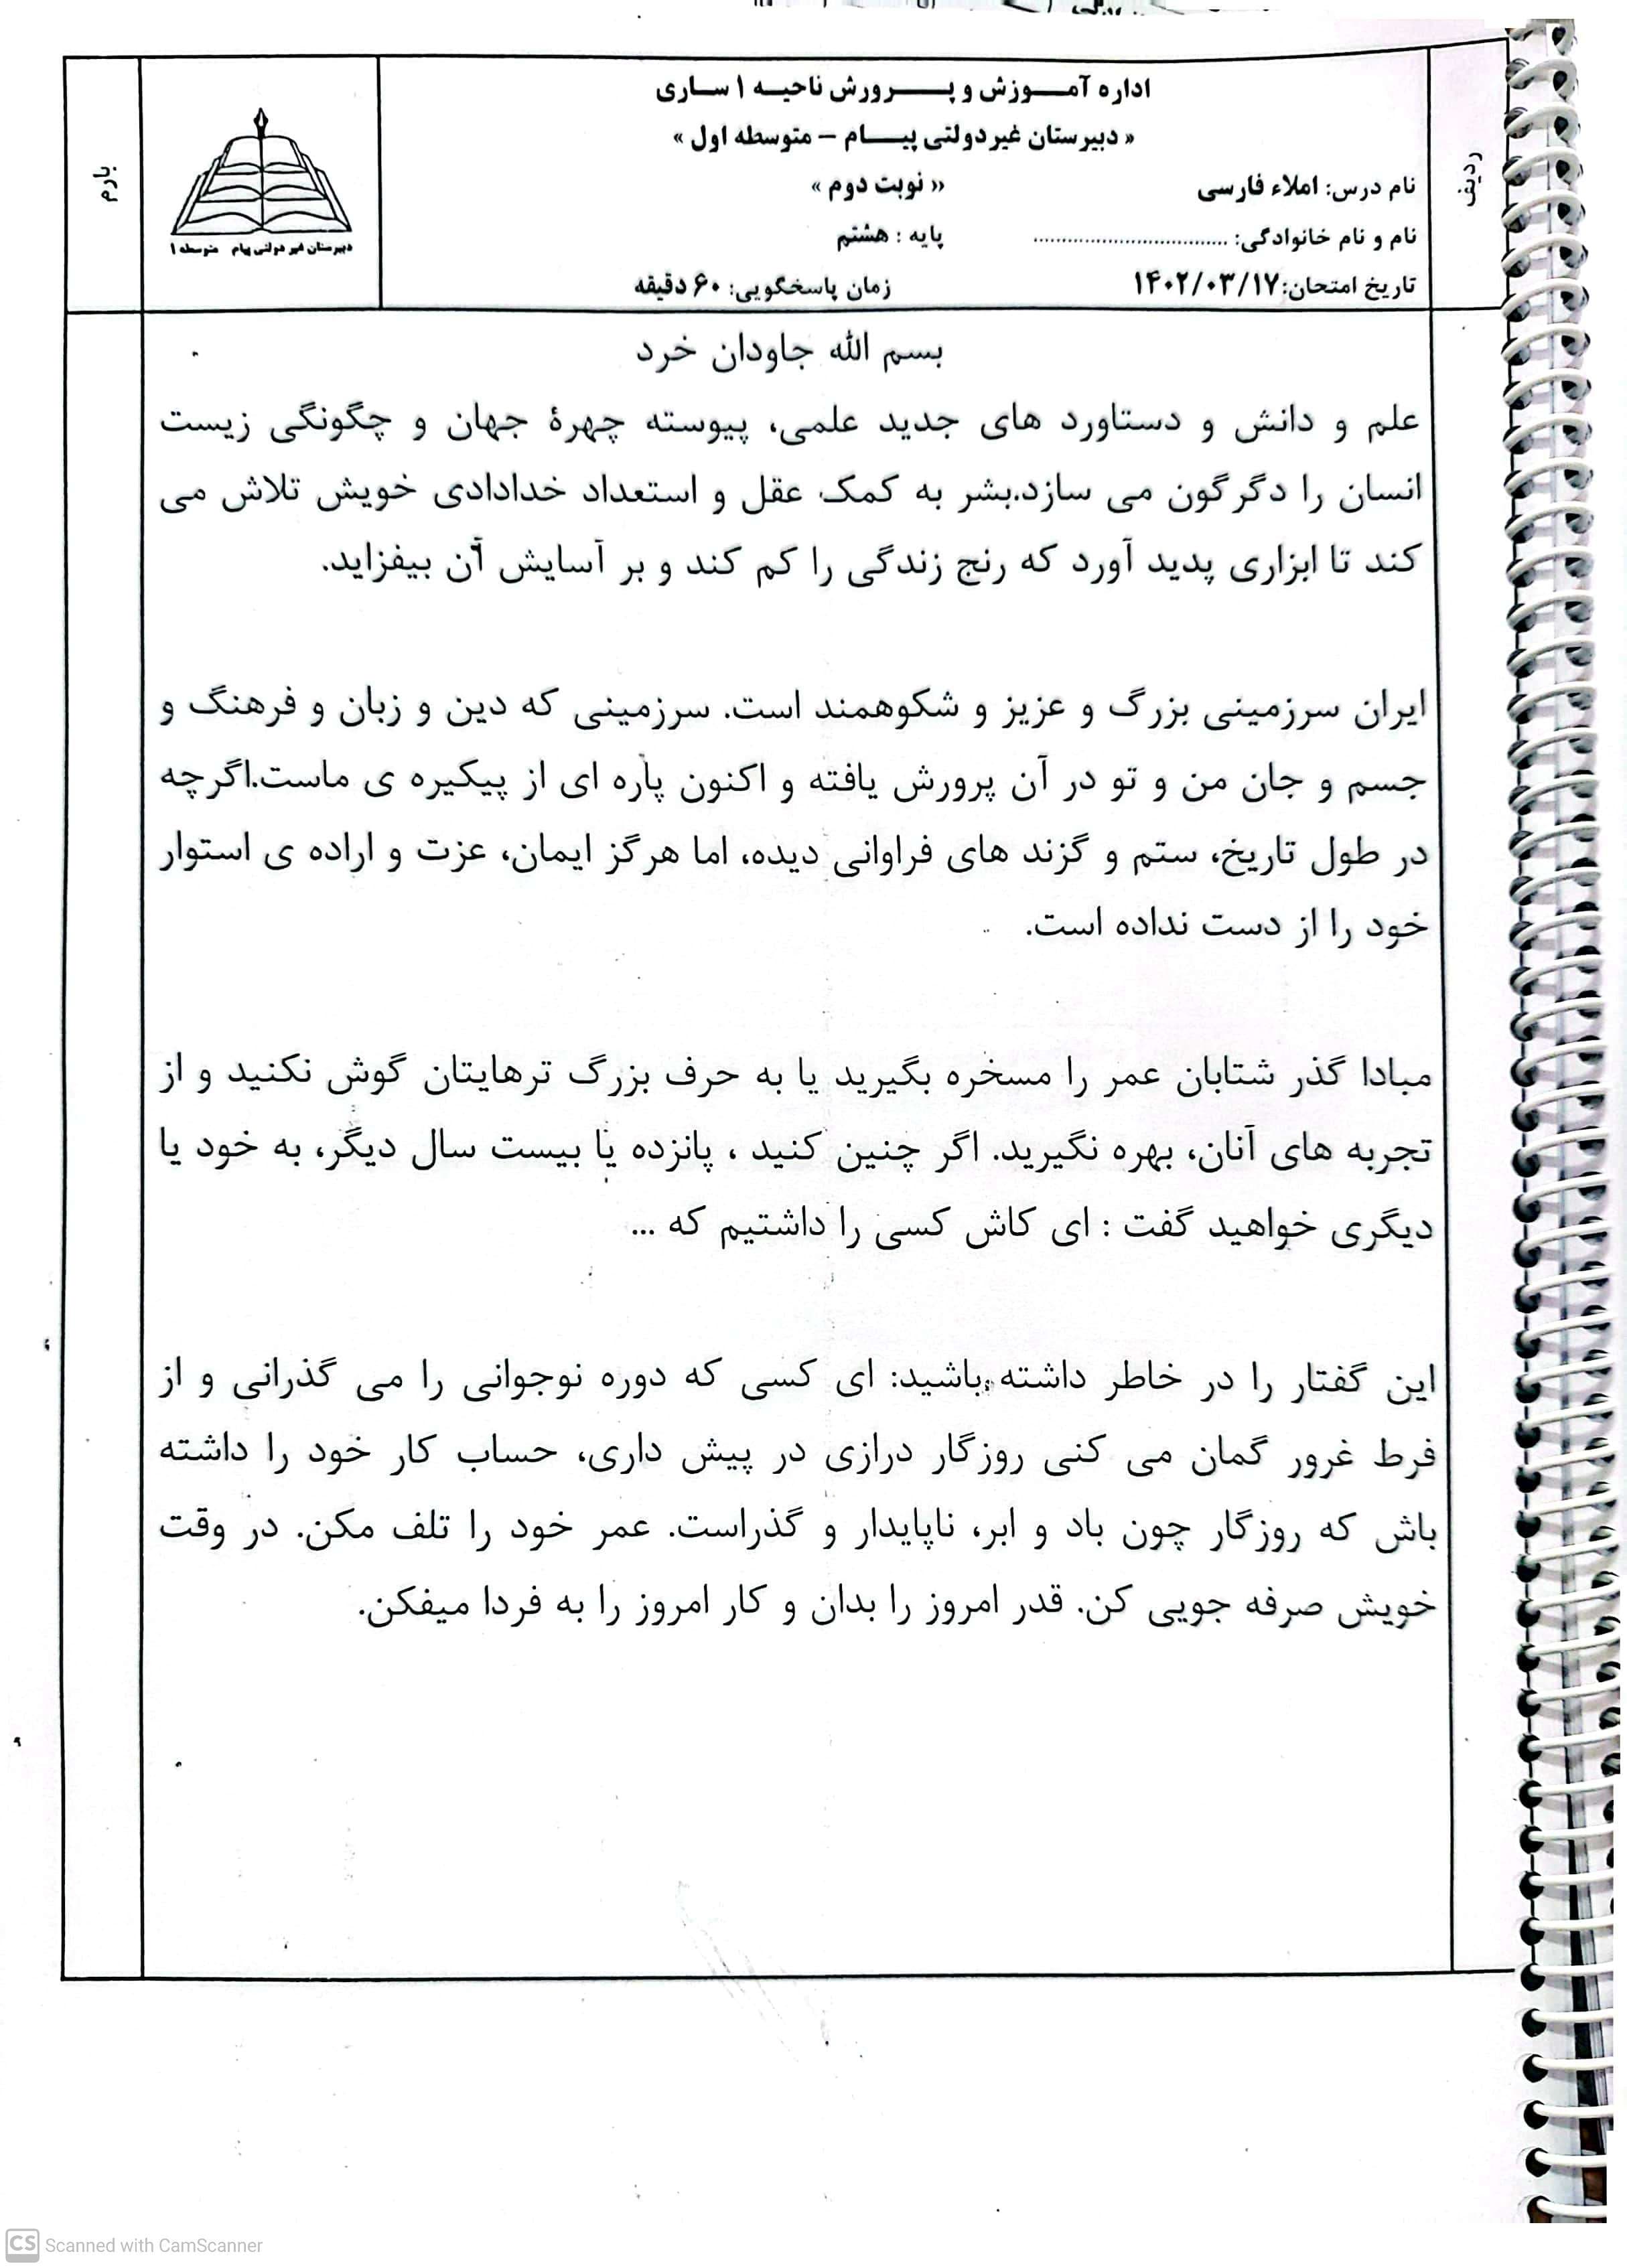 اداره آموزش و پرورش ناحیه ۱ ساری
« دبیرستان غیردولتی پیام – متوسطه اول »
نام درس: املاء فارسی
« نوبت دوم »
نام و نام خانوادگی: ................................
پایه : هشتم
تاریخ امتحان:۱۴۰۲/۰۳/۱۷
زمان پاسخگویی: ۶۰ دقیقه
ردیف
بارم
دبیرستان غیر دولتی پیام متوسطه ۱
بسم الله جاودان خرد
علم و دانش و دستاورد های جدید علمی، پیوسته چهرهٔ جهان و چگونگی زیست
انسان را دگرگون می سازد.بشر به کمک عقل و استعداد خدادادی خویش تلاش می
کند تا ابزاری پدید آورد که رنج زندگی را کم کند و بر آسایش آن بیفزاید.
ایران سرزمینی بزرگ و عزیز و شکوهمند است. سرزمینی که دین و زبان و فرهنگ و
جسم و جان من و تو در آن پرورش یافته و اکنون پاره ای از پیکیره ی ماست.اگرچه
در طول تاریخ، ستم و گزند های فراوانی دیده، اما هرگز ایمان، عزت و اراده ی استوار
خود را از دست نداده است.
مبادا گذر شتابان عمر را مسخره بگیرید یا به حرف بزرگ ترهایتان گوش نکنید و از
تجربه های آنان، بهره نگیرید. اگر چنین کنید ، پانزده یا بیست سال دیگر، به خود یا
دیگری خواهید گفت : ای کاش کسی را داشتیم که ...
این گفتار را در خاطر داشته باشید: ای کسی که دوره نوجوانی را می گذرانی و از
فرط غرور گمان می کنی روزگار درازی در پیش داری، حساب کار خود را داشته
باش که روزگار چون باد و ابر، ناپایدار و گذراست. عمر خود را تلف مکن. در وقت
خویش صرفه جویی کن. قدر امروز را بدان و کار امروز را به فردا میفکن.
CS Scanned with CamScanner